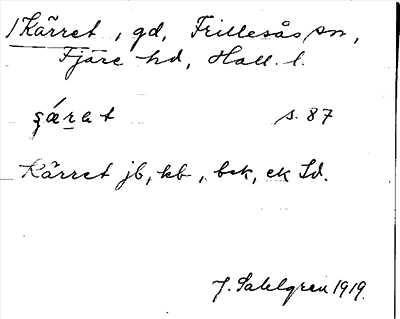 1 Kärret, gd, Frillesås sn,
Fjäre hd, Hall. l.
s. 87
Kärret jb, kb, bek, ek Id.
J. Sahlgren 1919.